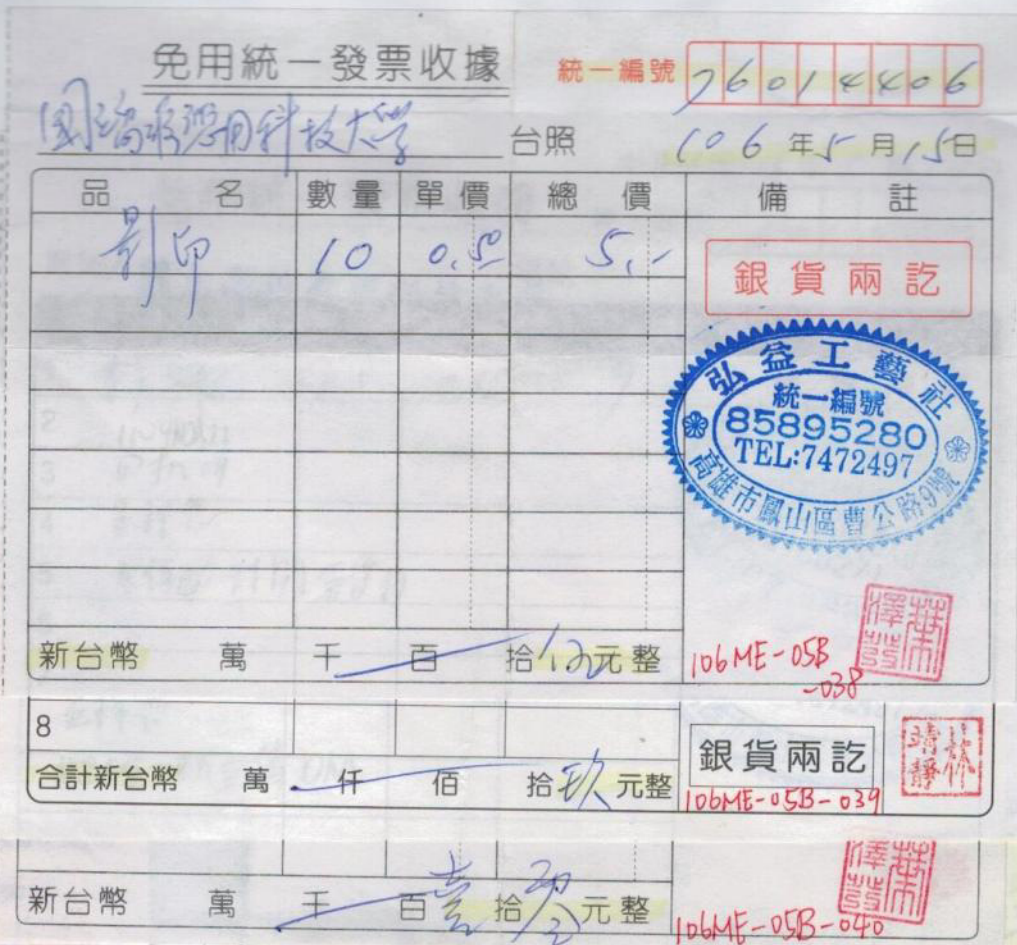 免用統一發票收據
統一編號 76014406
國立高雄應用科技大學 台照 106年5月15日
品名 數量 單價 總價 備註
影印 10 0.50 5.-
銀貨兩訖
弘益工藝社
統一編號
85895280
TEL:7472497
高雄市鳳山區曹公路9號
新台幣 萬 千 百 拾 元整
106ME-05B
-038
8
銀貨兩訖
合計新台幣 萬 仟 佰 拾玖元整
106ME-05B-039
新台幣 萬 千 百壹拾 元整
106ME-05B-040